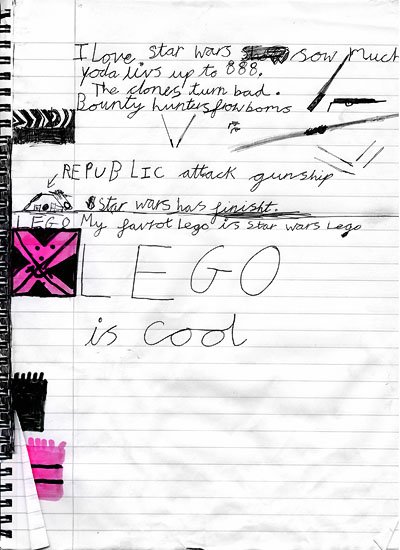 I Love star wars sow much
yoda livs up to 888.
The clones turn bad.
Bounty hunters frow boms
REPUBLIC attack gunship
star wars has finisht.
LEGO My favrot Lego is star wars Lego
LEGO
is cool